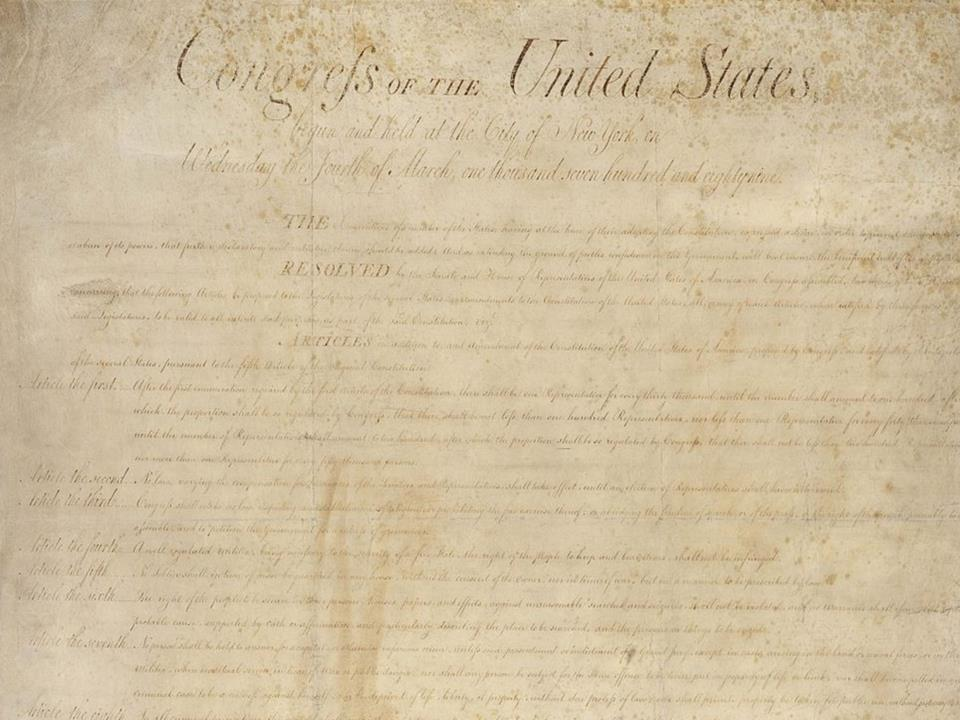 Congress OF THE United States,
begun and held at the City of New York, on
Wednesday the fourth of March, one thousand seven hundred and eighty nine.
THE Conventions of a number of the States, having at the time of their adopting the Constitution, expressed a desire, in order to prevent
abuse of its powers, that further declaratory and restrictive clauses should be added: And as extending the ground of public confidence in the Government, will best ensure the beneficent ends of
RESOLVED by the Senate and House of Representatives of the United States of America, in Congress assembled, two thirds of
concurring, that the following Articles be proposed to the Legislatures of the several States, as amendments to the Constitution of the United States, all, or any of which Articles, when ratified by three fourths
said Legislatures, to be valid to all intents and purposes, as part of the said Constitution; vizt.
ARTICLES in addition to, and Amendment of the Constitution of the United States of America, proposed by Congress, and ratified by the Legislatures
of the several States, pursuant to the fifth Article of the original Constitution.
Article the first... After the first enumeration required by the first Article of the Constitution, there shall be one Representative for every thirty thousand, until the number shall amount to one hundred, after
which, the proportion shall be so regulated by Congress, that there shall be not less than one hundred Representatives, nor less than one Representative for every forty thousand persons,
until the number of Representatives shall amount to two hundred, after which the proportion shall be so regulated by Congress, that there shall not be less than two hundred Representatives,
nor more than one Representative for every fifty thousand persons.
Article the second... No law, varying the compensation for the services of the Senators and Representatives, shall take effect, until an election of Representatives shall have intervened.
Article the third... Congress shall make no law respecting an establishment of religion, or prohibiting the free exercise thereof; or abridging the freedom of speech, or of the press; or the right of the people peaceably to
assemble, and to petition the Government for a redress of grievances.
Article the fourth... A well regulated Militia, being necessary to the security of a free State, the right of the people to keep and bear Arms, shall not be infringed.
Article the fifth... No Soldier shall, in time of peace be quartered in any house, without the consent of the Owner, nor in time of war, but in a manner to be prescribed by law.
Article the sixth... The right of the people to be secure in their persons, houses, papers, and effects, against unreasonable searches and seizures, shall not be violated, and no Warrants shall issue, but upon
probable cause, supported by Oath or affirmation, and particularly describing the place to be searched, and the persons or things to be seized.
Article the seventh.. No person shall be held to answer for a capital, or otherwise infamous crime, unless on a presentment or indictment of a Grand Jury, except in cases arising in the land or naval forces, or in the
Militia, when in actual service in time of War or public danger; nor shall any person be subject for the same offence to be twice put in jeopardy of life or limb; nor shall be compelled in any
criminal case to be a witness against himself, nor be deprived of life, liberty, or property, without due process of law; nor shall private property be taken for public use, without just
Article the eighth